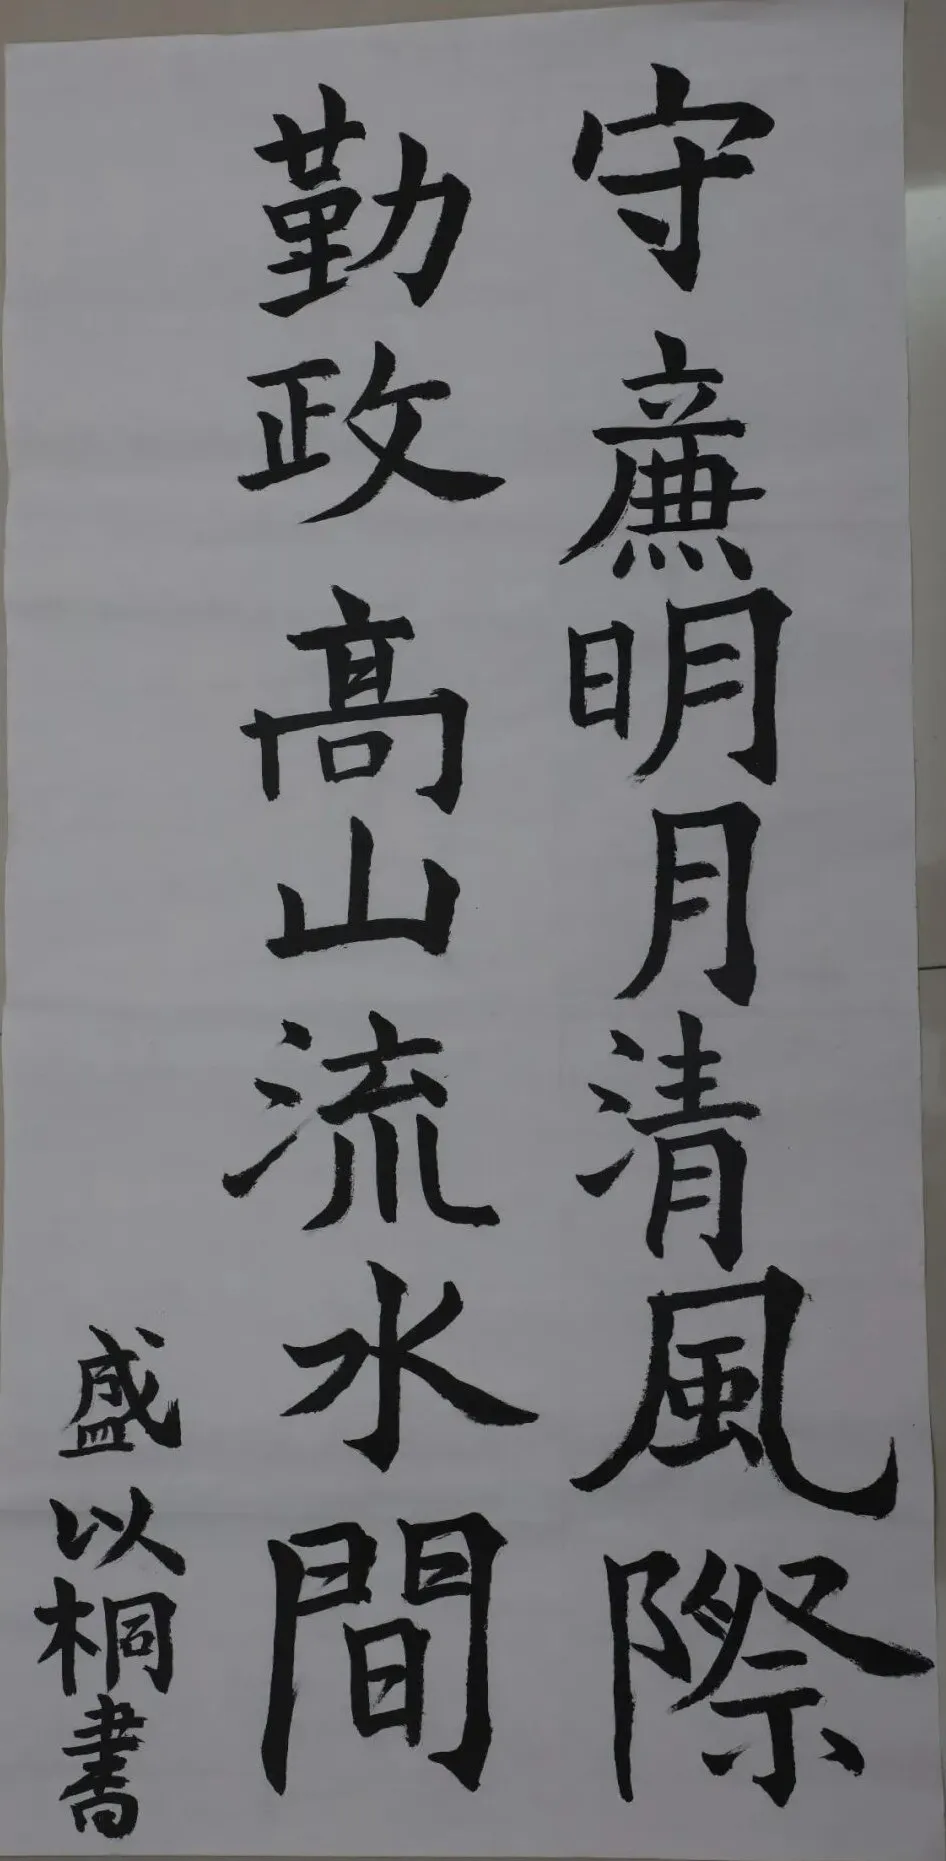 守廉明月清風際
勤政高山流水間
盛以桐書